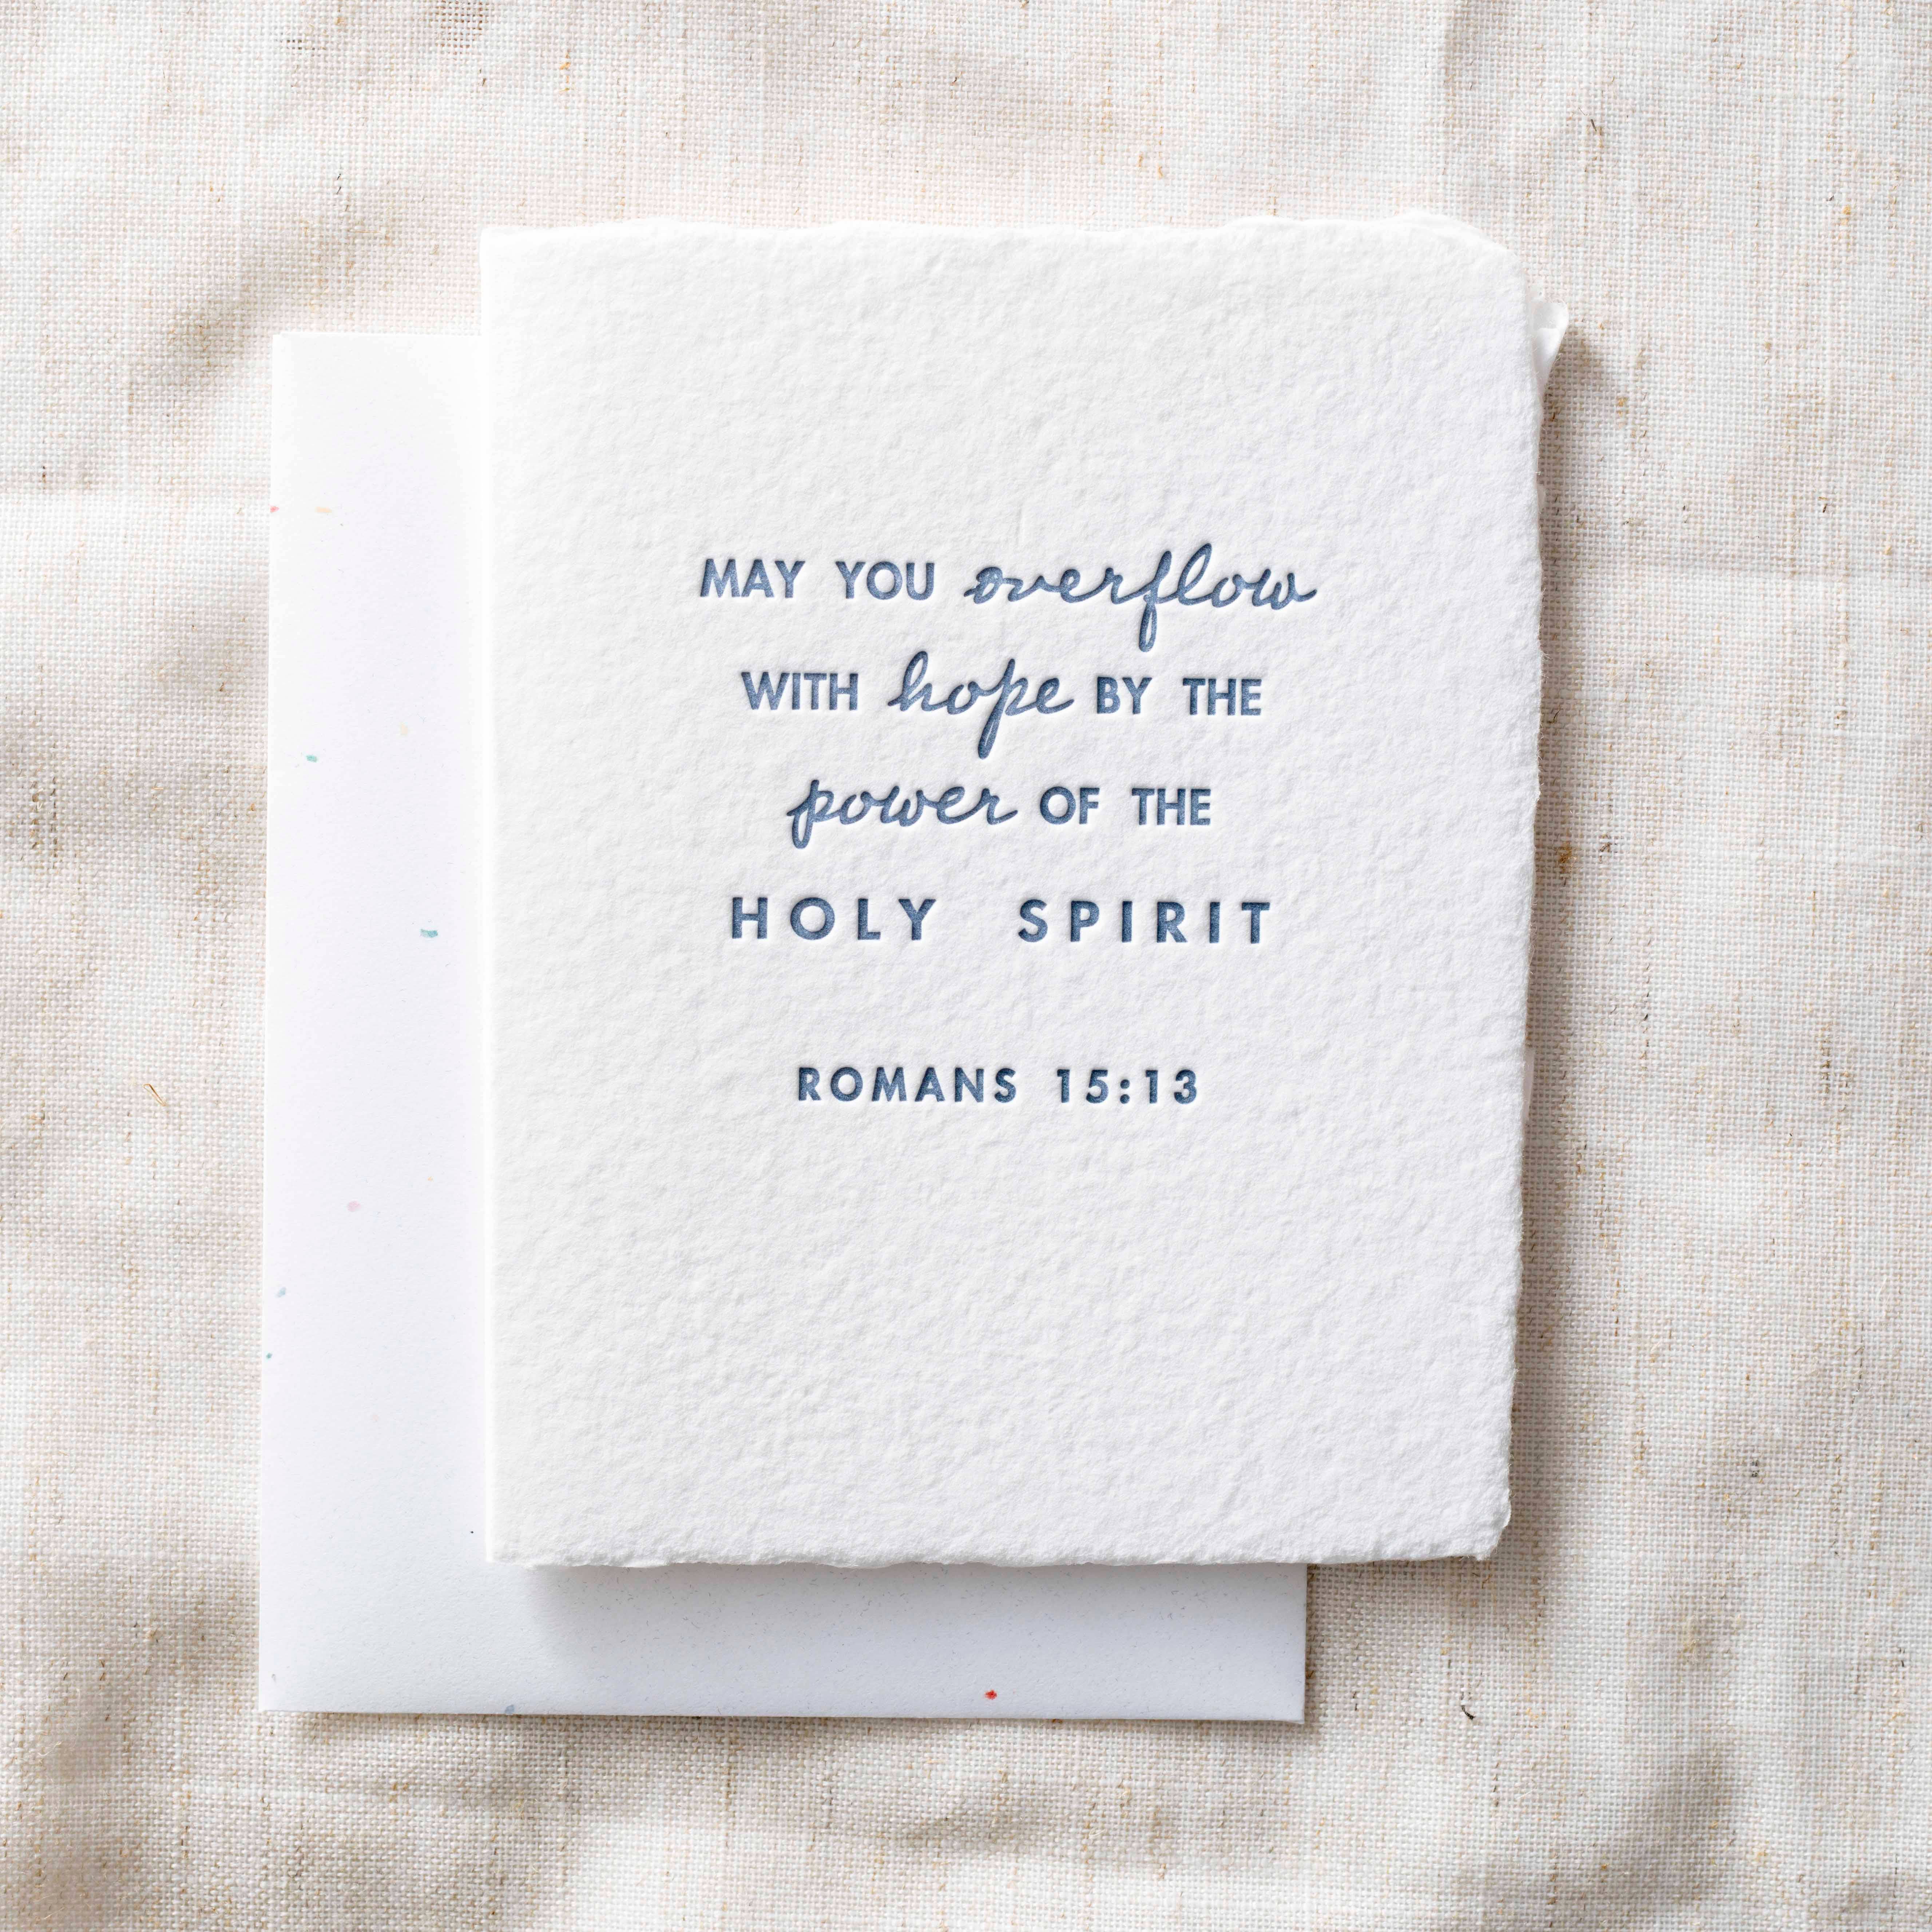 MAY YOU overflow
WITH hope BY THE
power OF THE
HOLY SPIRIT
ROMANS 15:13